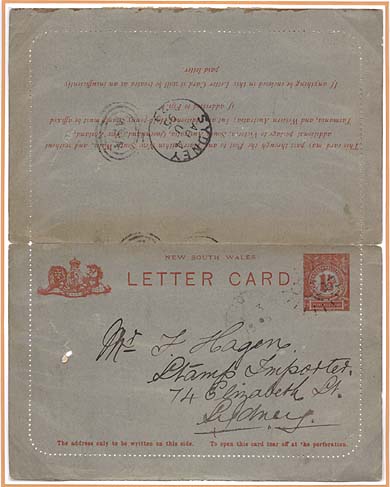 This card may pass through the Post to any address within New South Wales, and without
additional postage to Victoria, South Australia, Queensland, New Zealand,
Tasmania, and Western Australia; but an additional Half-penny Stamp must be affixed
if addressed to Fiji.
If anything be enclosed in this Letter Card it will be treated as insufficiently
paid letter
SYDNEY
NEW SOUTH WALES
LETTER CARD.
Mr F Hagen
Stamp Importer.
74 Elizabeth St.
Sydney.
The address only to be written on this side. To open this card tear off at the perforation.